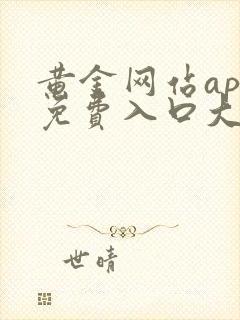 黄金网站ap
免费入口大
世晴